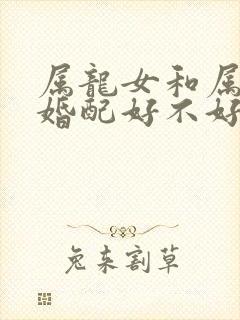 属龍女和属
婚配好不好
兔来割草